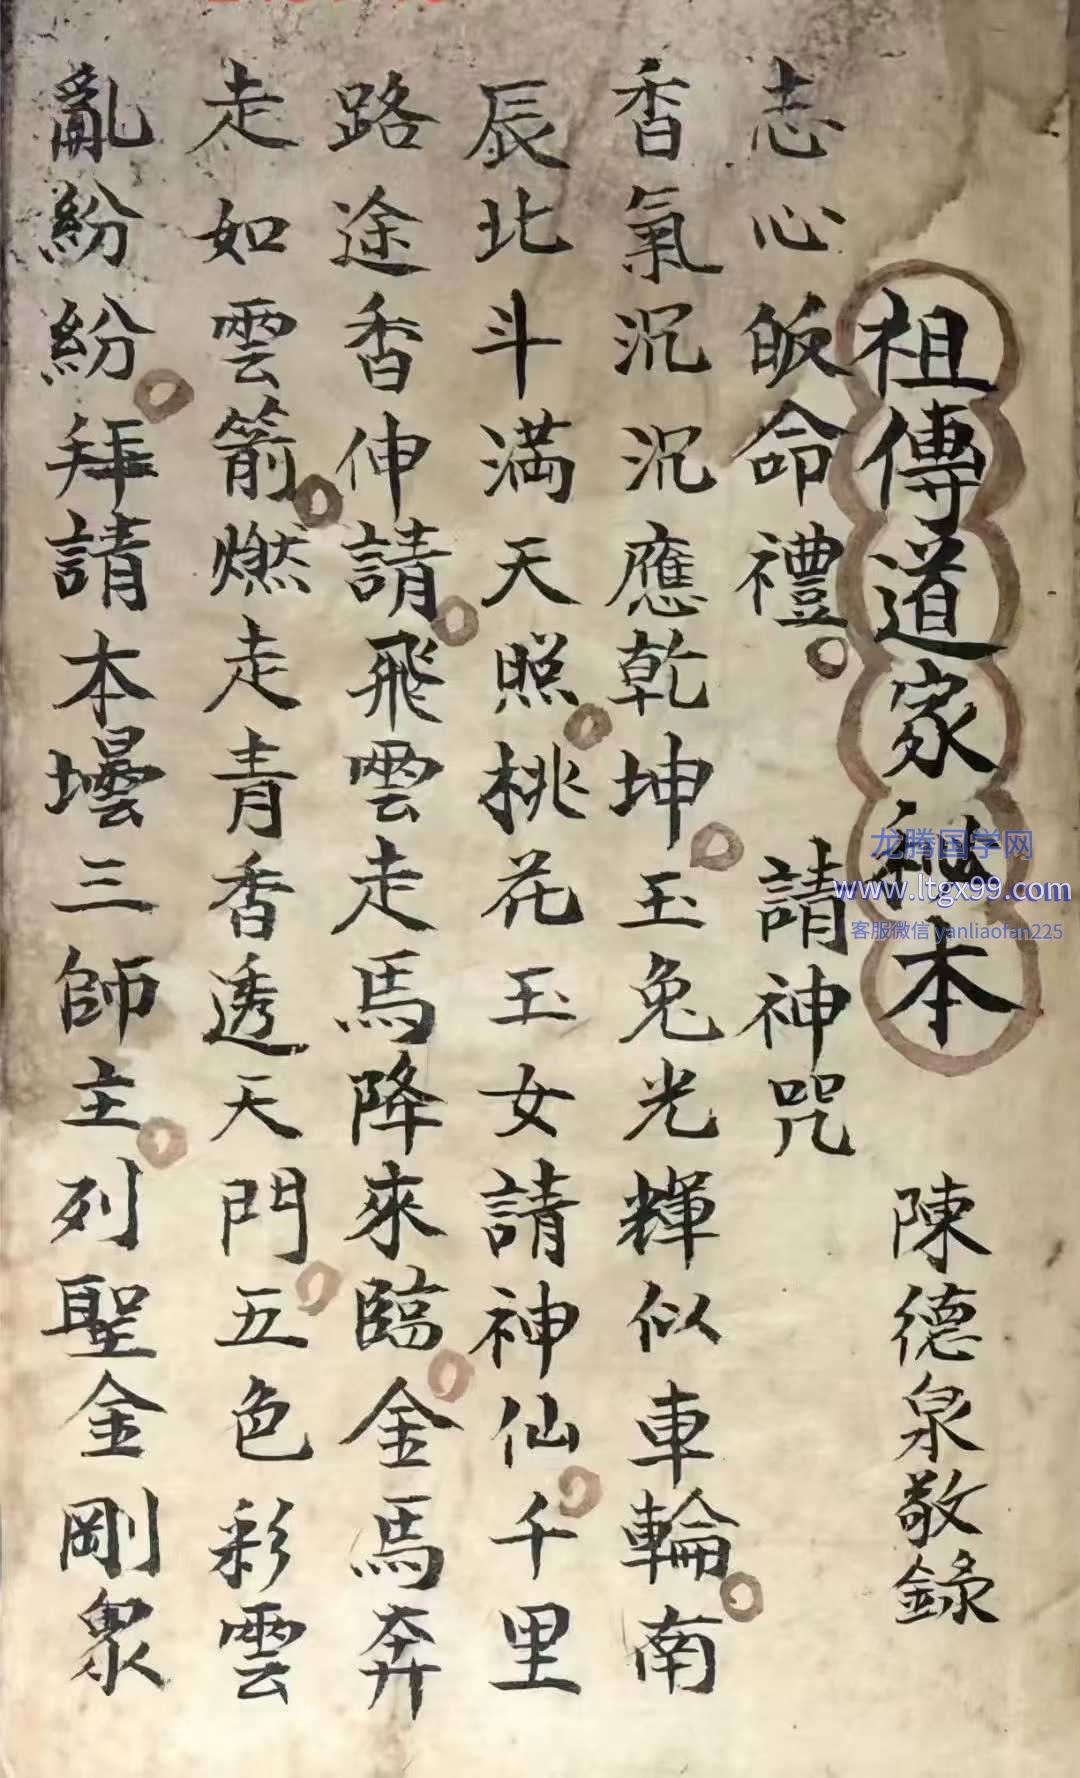 祖傳道家秘本 陳德泉敬錄
志心皈命禮 請神咒
香氣沉沉應乾坤玉兔光輝似車輪南
辰北斗满天照桃花玉女請神仙千里
路途香伸請飛雲走馬降來臨金馬奔
走如雲箭燃走青香透天門五色彩雲
亂紛紛拜請本壜三師主列聖金剛眾
龙腾国学网
www.ltgx99.com
客服微信 yanliaofan225